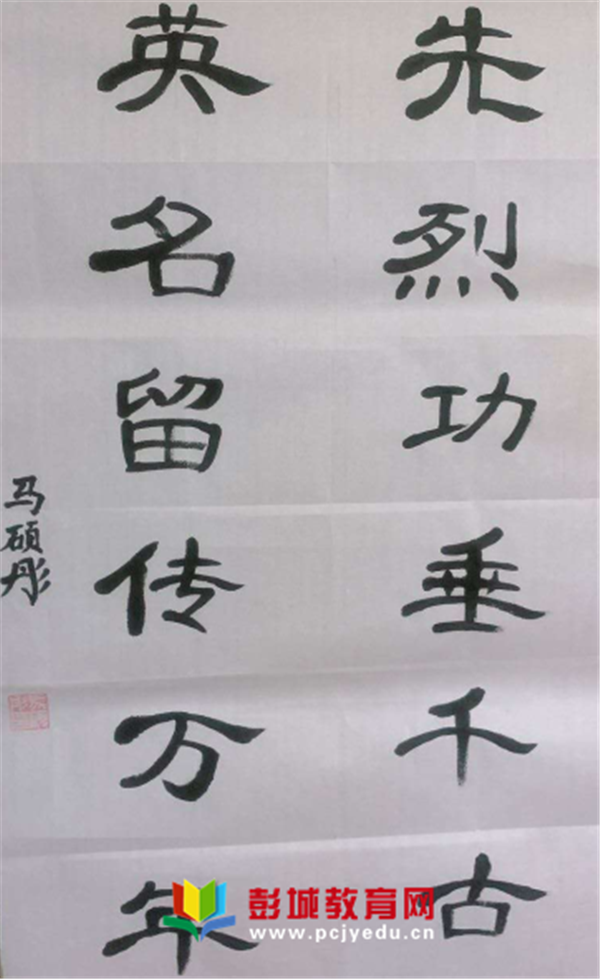 先烈功垂千古
英名留传万年
马硕彤
彭城教育网
www.pcjyedu.cn